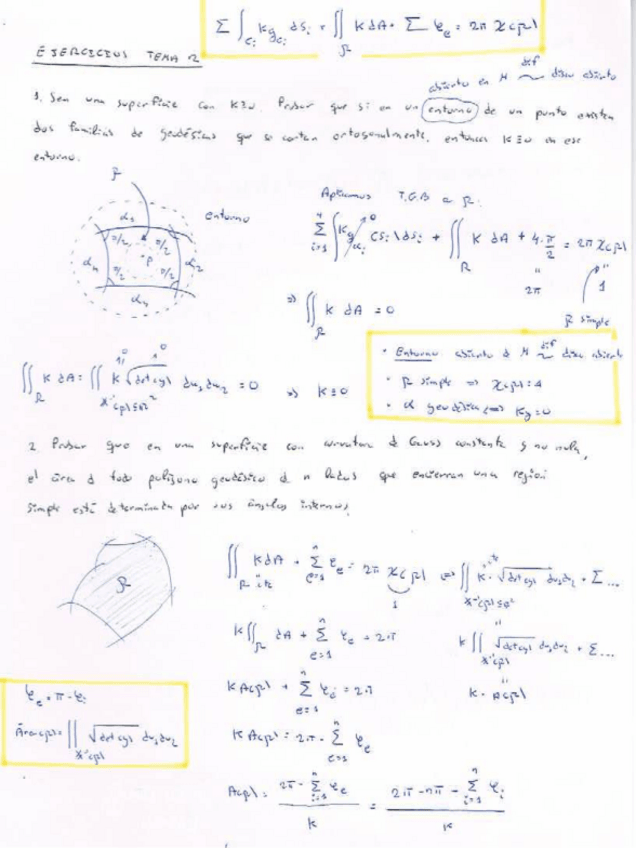 Σ ∫_{Ci} Kg_{Ci} dSi + ∬_R K dA + Σ φe = 2π χ(R)
EJERCICIOS TEMA 12
abierto en M ~ dif disco abierto
1. Sea una superficie con K≥0. Probar que si en un entorno de un punto existen
dos familias de geodésicas que se cortan ortogonalmente, entonces K≡0 en ese
entorno.
R
entorno
α3
α2
α4
π/2 π/2
π/2 π/2
P
Aplicamos T.G.B a R:
Σ_{i=1}^{4} ∫ Kg_{αi} (Si) dSi + ∬_R K dA + 4·π/2 = 2π χ(R)
0
2π
1
R simple
⇒ ∬_R K dA = 0
∬_R K dA = ∬_{X⁻¹(R)⊂R²} K √det(g) du1 du2 = 0 ⇒ K≡0
· Entorno abierto d M ~ dif disco abierto
· R simple ⇒ χ(R) = 1
· α geodésica ⟺ Kg = 0
2. Probar que en una superficie con curvatura d Gauss constante y no nula,
el área d todo polígono geodésico d n lados que encierran una región
simple está determinada por sus ángulos internos.
R
∬_R K dA + Σ_{e=1}^{n} φe = 2π χ(R) ⟺ ∬_{X⁻¹(R)⊂R²} K · √det(g) du1 du2 + Σ ...
1
cte
K ∬_R dA + Σ_{e=1}^{n} φe = 2π
K ∬_{X⁻¹(R)} √det(g) du1 du2 + Σ ...
K A(R) + Σ_{e=1}^{n} φe = 2π
K · A(R)
φe = π - φi
Área(R) = ∬_{X⁻¹(R)} √det(g) du1 du2
K A(R) = 2π - Σ_{e=1}^{n} φe
A(R) = (2π - Σ_{i=1}^{n} φe) / K = (2π - nπ - Σ_{i=1}^{n} φi) / K